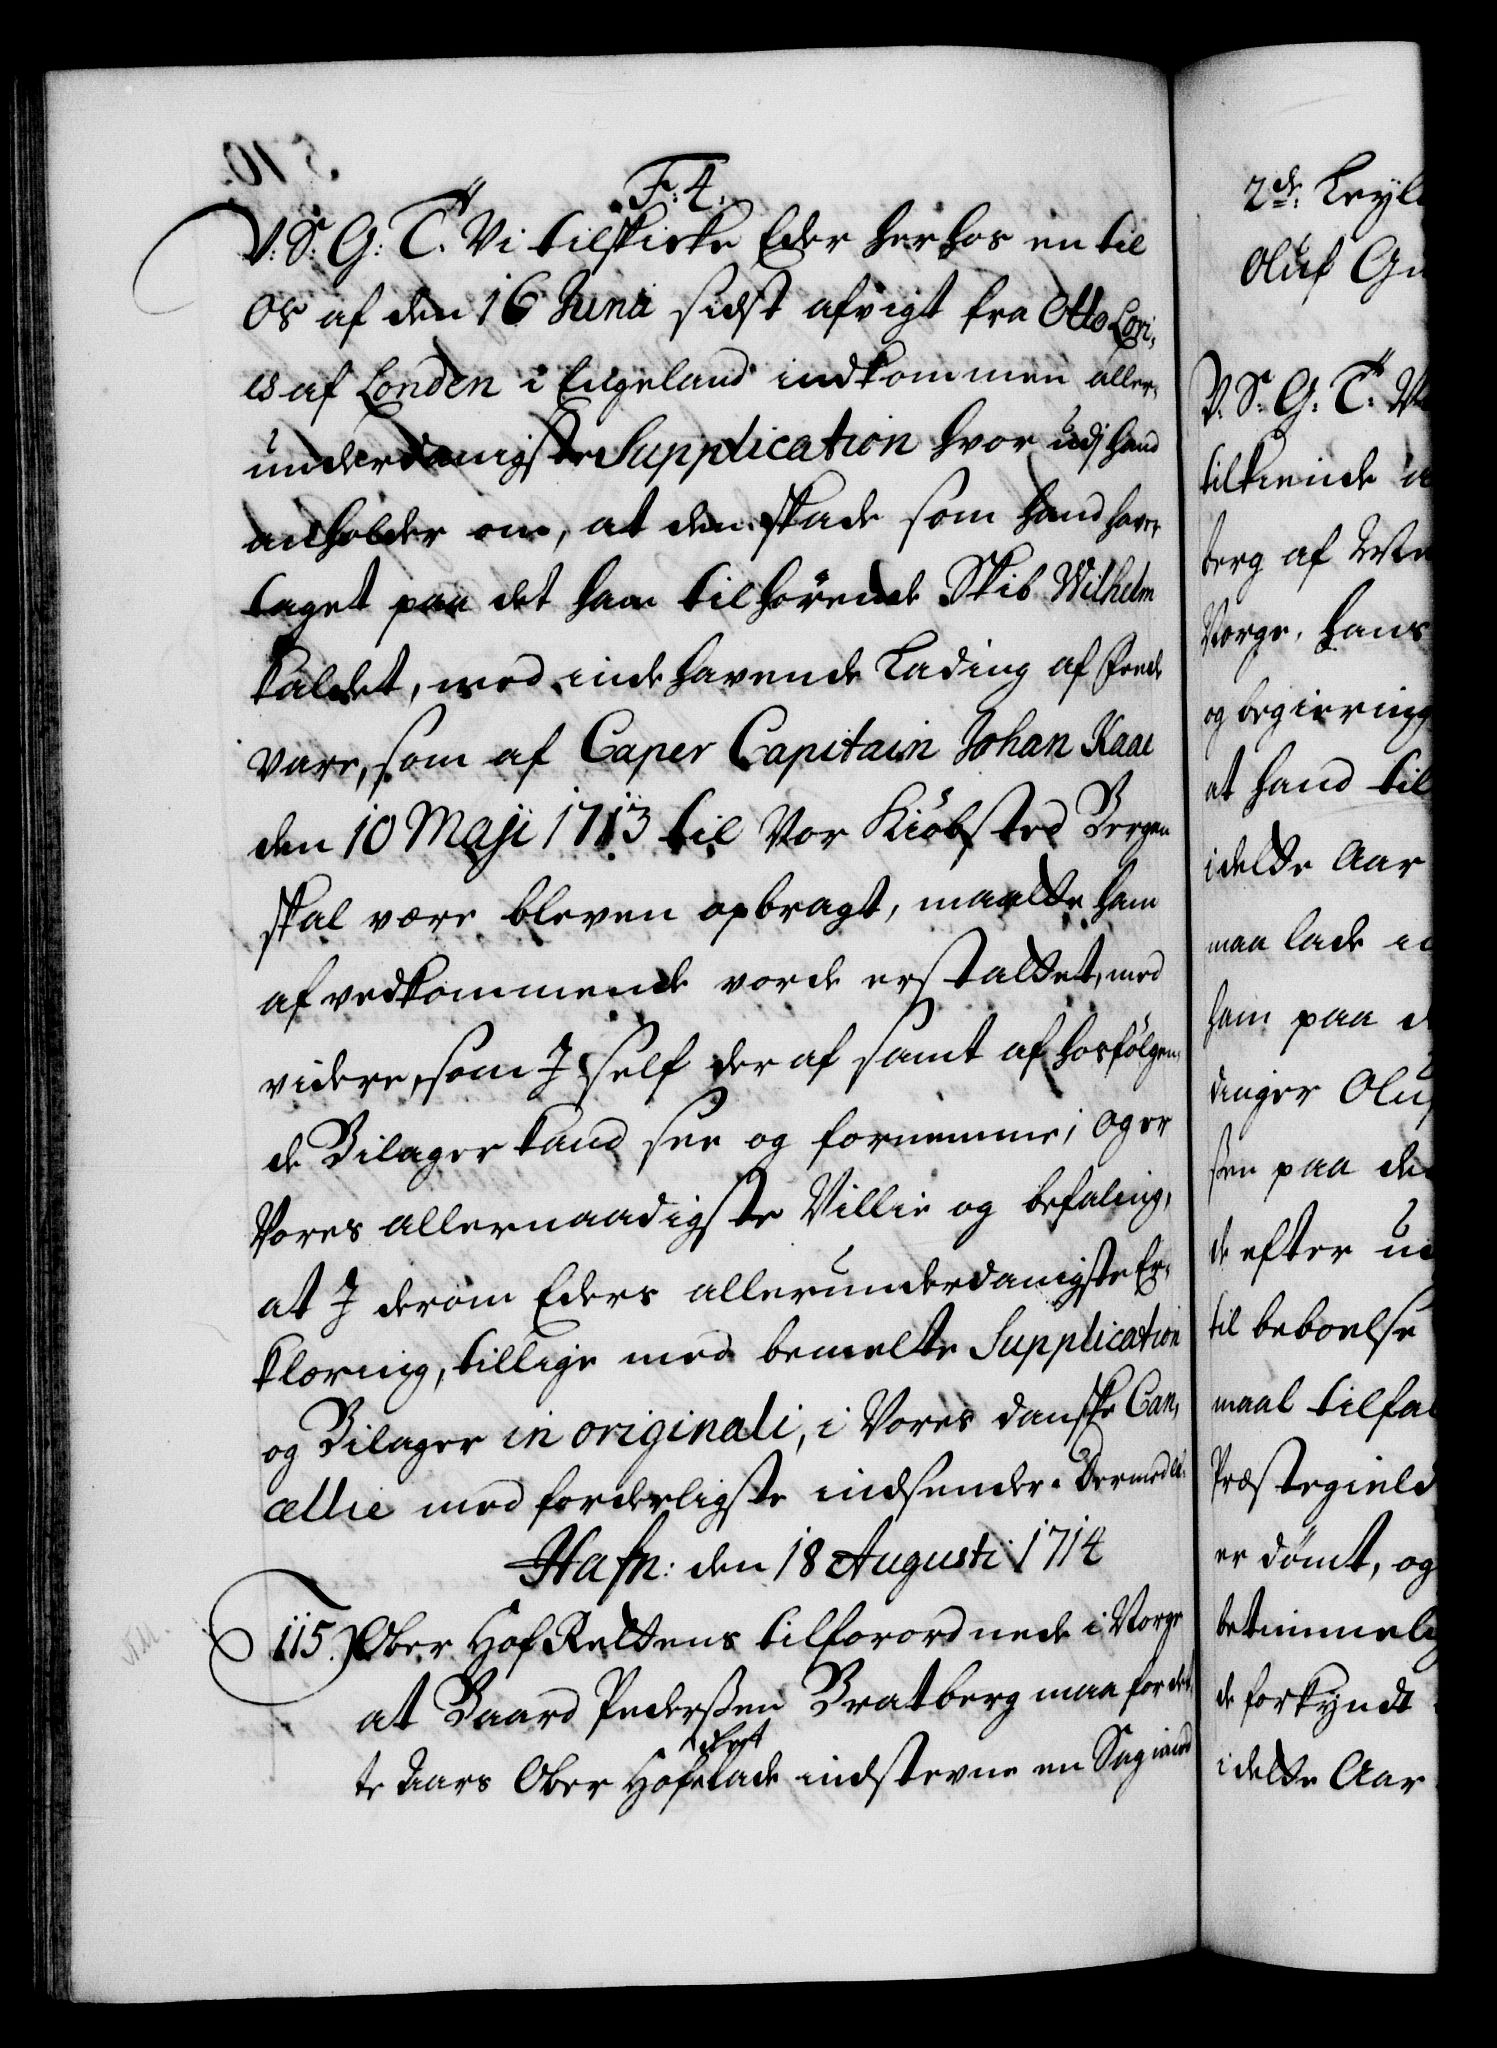 F. 4.
V. S. G. T. Vi tilskicke Eder herhos en til
os af den 16 Juni sidst afvigt fra Otto Lori,
es af Londen i Engeland indkommen aller,
underdanigste Supplication hvor udj hand
anholder om, at den skade som hand haver
taget paa det ham tilhørende Skib Wilhelm
kaldet, med indehavende Lading af stende
vare, som af Caper Capitain Johan Kaae
den 10 Maji 1713 til Vor Kiöbsted Bergen
skal være bleven opbragt, maatte ham
af vedkommende vorde erstattet, med
videre, som I self der af samt af hosfölgen,
de Bilager kand see og fornemme; og er
Vores allernaadigste Villie og befaling,
at I derom Eders allerunderdanigste Er,
klæring, tillige med bemelte Supplication
og Bilager in originali, i Vores danske Can,
cellie med forderligste indsender. Dermed &c:
Hafn: den 18 Augusti 1714
115. Ober Hof Rettens tilforordnede i Norge
at Baard Pederßen Bratberg maa for det,
te Aars Ober Hof Ret lade indstevne en Sag imod
2de. Leyl
Oluf Gu
V. S. G. T. Vi
tilkiende
berg af
Norge, hans
og begiering
at hand til
i dette Aar
maa lade
ham paa d
dinger Oluf
ßen paa de
de efter
til beboelse
maal tilfal
Præstegield
er dömt, og
betimmelig
de forkyndt
i dette Aar